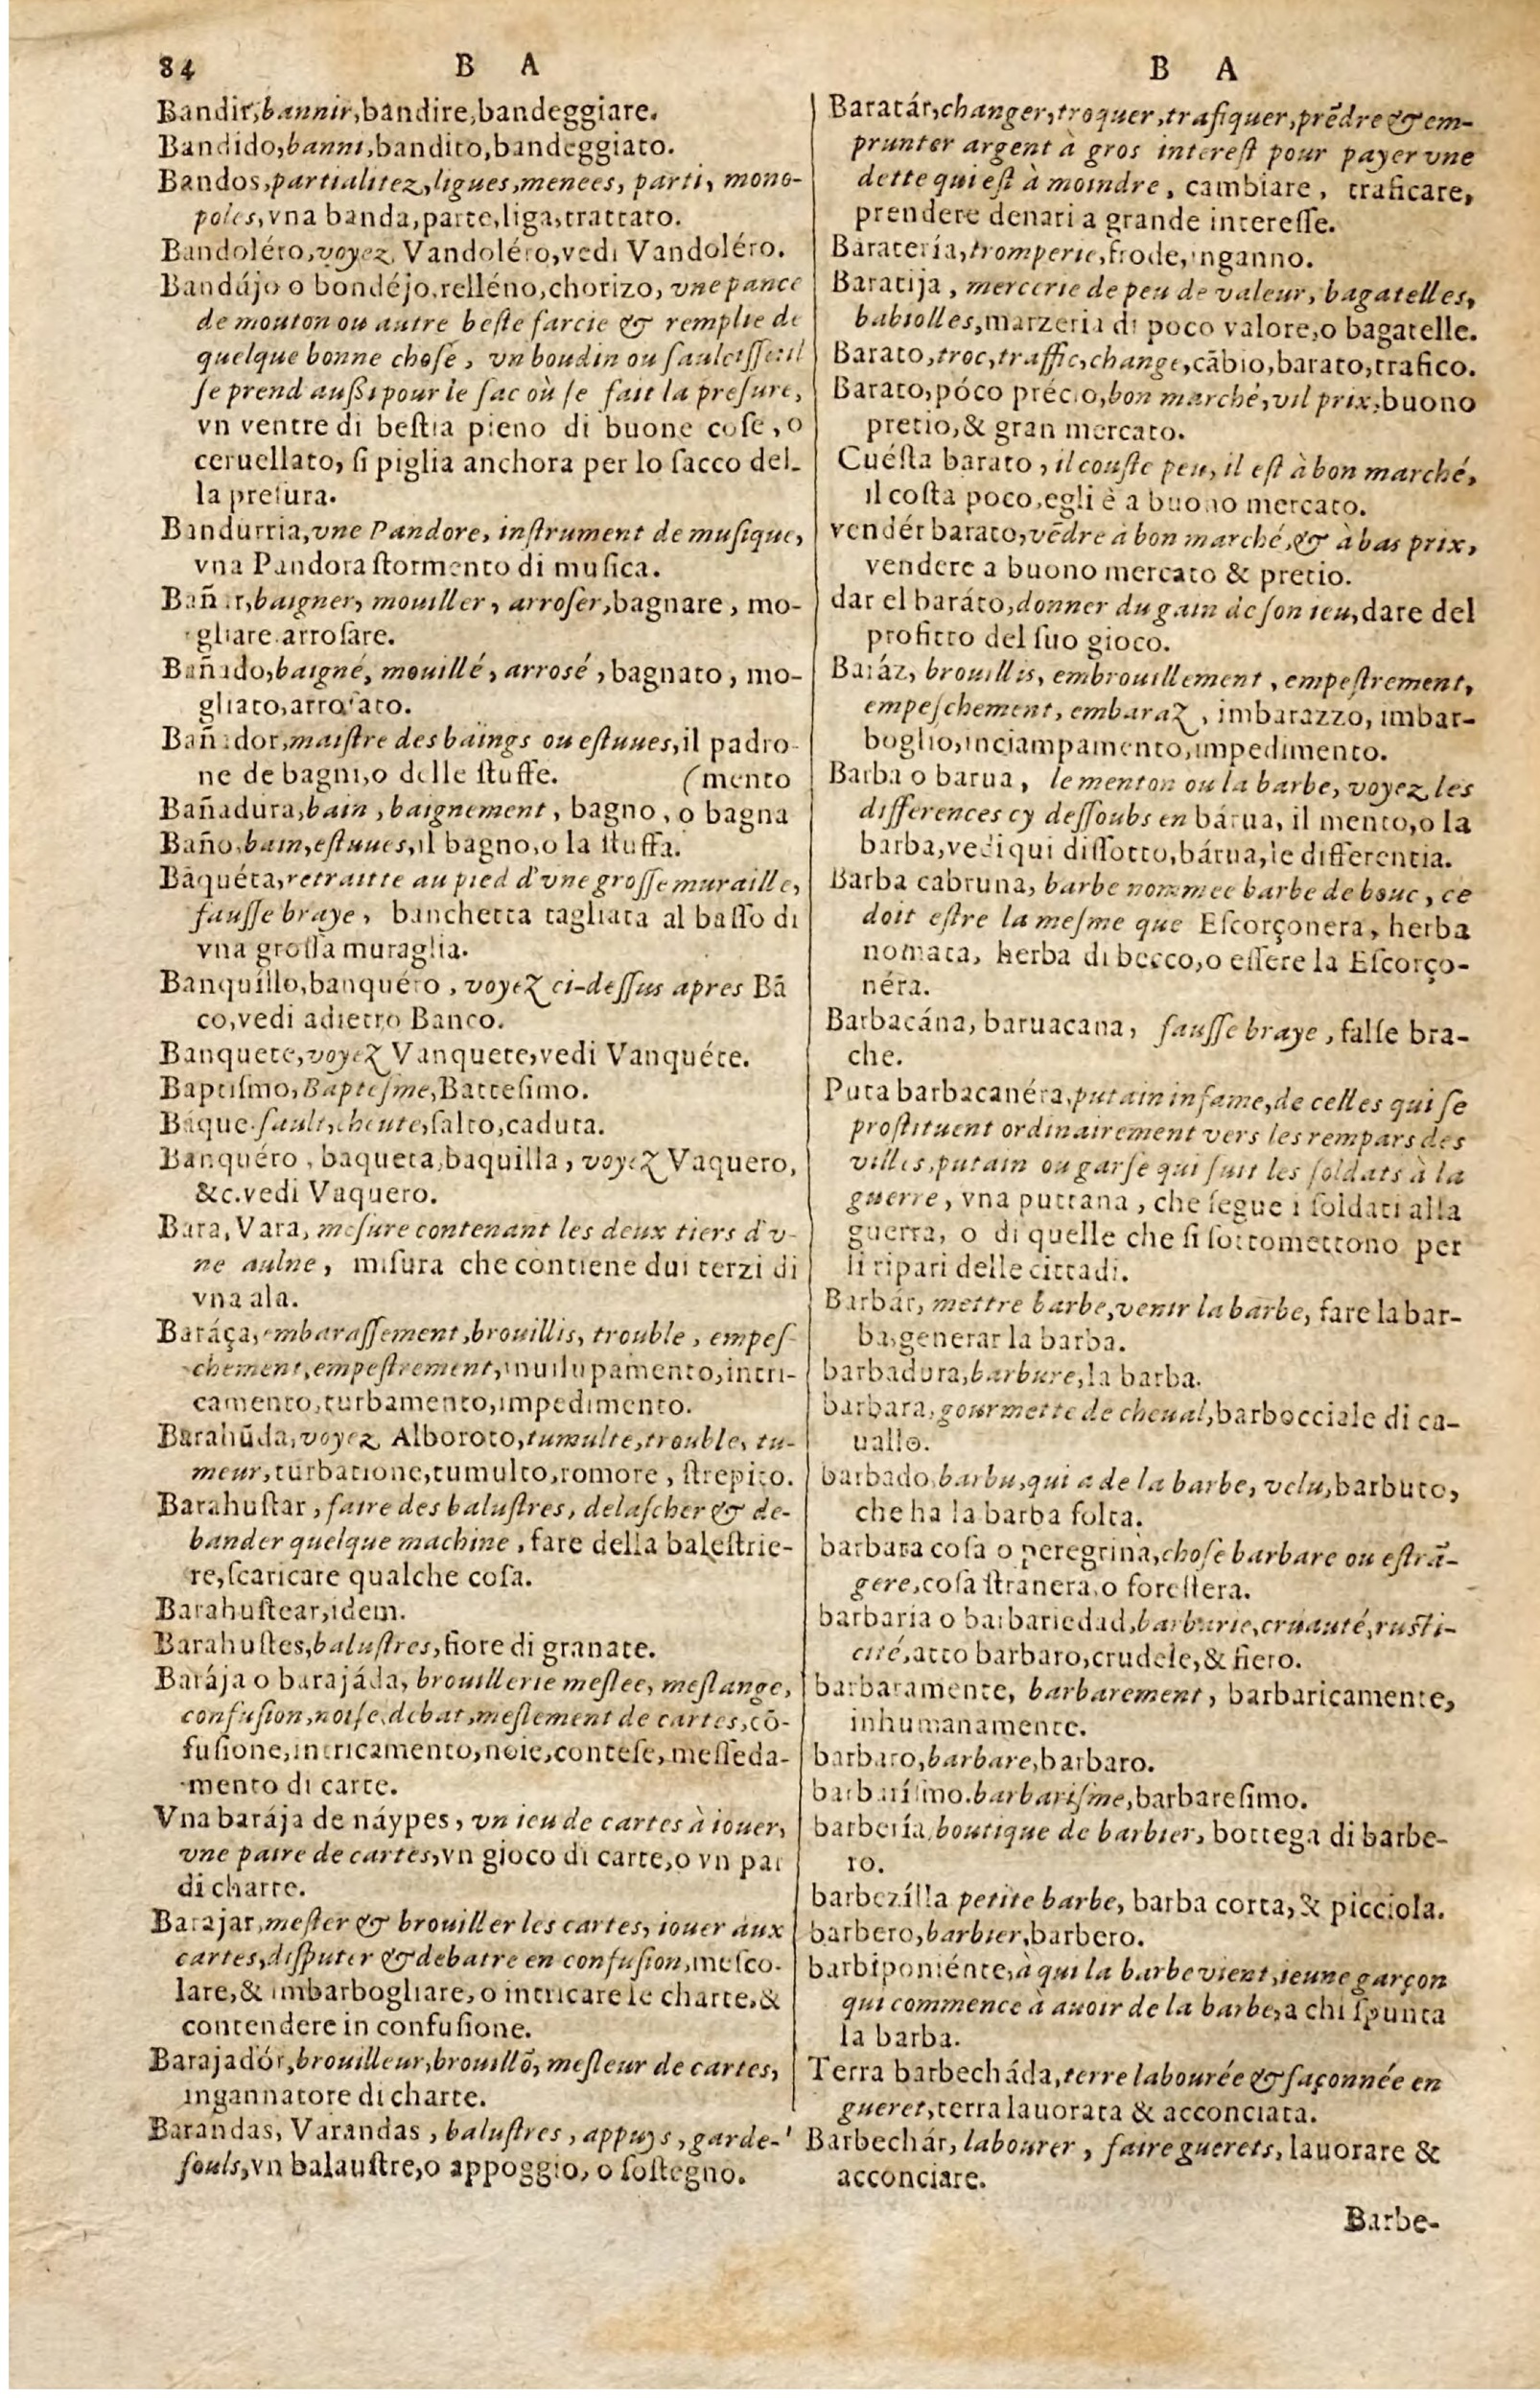 84 B A
Bandir, bannir, bandire, bandeggiare.
Bandido, banni, bandito, bandeggiato.
Bandos, partialitez, ligues, menees, parti, mono-
poles, vna banda, parte, liga, trattato.
Bandoléro, voyez Vandoléro, vedi Vandoléro.
Bandújo o bondéjo, relléno, chorizo, vne pance
de mouton ou autre beſte farcie & remplie de
quelque bonne choſe, vn boudin ou ſaulciſſe: il
ſe prend außi pour le ſac où ſe fait la preſure,
vn ventre di beſtia pieno di buone coſe, o
ceruellato, ſi piglia anchora per lo ſacco del-
la preſura.
Bandurria, vne Pandore, inſtrument de muſique,
vna Pandora ſtormento di muſica.
Bañar, baigner, mouiller, arroſer, bagnare, mo-
gliare, arroſare.
Bañado, baigné, mouillé, arrosé, bagnato, mo-
gliato, arroſato.
Bañador, maiſtre des baings ou eſtuues, il padro-
ne de bagni, o delle ſtuffe. (mento
Bañadura, bain, baignement, bagno, o bagna
Baño, bain, eſtuues, il bagno, o la ſtuffa.
Bāquéta, retraitte au pied d'vne groſſe muraille,
fauſſe braye, banchetta tagliata al baſſo di
vna groſſa muraglia.
Banquíllo, banquéro, voyez ci-deſſus apres Bā
co, vedi adietro Banco.
Banquete, voyez Vanquete, vedi Vanquéte.
Baptiſmo, Bapteſme, Batteſimo.
Báque, ſault, cheute, ſalto, caduta.
Banquéro, baqueta, baquilla, voyez Vaquero,
&c. vedi Vaquero.
Bara, Vara, meſure contenant les deux tiers d'v-
ne aulne, miſura che contiene dui terzi di
vna ala.
Baráça, embaraſſement, brouillis, trouble, empeſ-
chement, empeſtrement, inuilupamento, intri-
camento, turbamento, impedimento.
Barahūda, voyez Alboroto, tumulte, trouble, tu-
meur, turbatione, tumulto, romore, ſtrepito.
Barahuſtar, faire des baluſtres, delaſcher & de-
bander quelque machine, fare della baleſtrie-
re, ſcaricare qualche coſa.
Barahuſtear, idem.
Barahuſtes, baluſtres, fiore di granate.
Barája o barajáda, brouillerie meſlee, meſlange,
confuſion, noiſe, debat, meſlement de cartes, cō-
fuſione, intricamento, noie, conteſe, meſſeda-
mento di carte.
Vna barája de náypes, vn ieu de cartes à iouer,
vne paire de cartes, vn gioco di carte, o vn par
di charte.
Barajar, meſler & brouiller les cartes, iouer aux
cartes, diſputer & debatre en confuſion, meſco-
lare, & imbarbogliare, o intricare le charte, &
contendere in confuſione.
Barajadór, brouilleur, brouillō, meſleur de cartes,
ingannatore di charte.
Barandas, Varandas, baluſtres, appuys, garde-
fouls, vn balauſtre, o appoggio, o ſoſtegno.
B A
Baratár, changer, troquer, trafiquer, prēdre & em-
prunter argent à gros intereſt pour payer vne
dette qui eſt à moindre, cambiare, traficare,
prendere denari a grande intereſſe.
Baratería, tromperie, frode, inganno.
Baratija, mercerie de peu de valeur, bagatelles,
babiolles, marzeria di poco valore, o bagatelle.
Barato, troc, traffic, change, cābio, barato, trafico.
Barato, póco précio, bon marché, vil prix, buono
pretio, & gran mercato.
Cuéſta barato, il couſte peu, il eſt à bon marché,
il coſta poco, egli è a buono mercato.
vendér barato, vēdre à bon marché, & à bas prix,
vendere a buono mercato & pretio.
dar el baráto, donner du gain de ſon ieu, dare del
profitto del ſuo gioco.
Baráz, brouillis, embrouillement, empeſtrement,
empeſchement, embaraz, imbarazzo, imbar-
boglio, inciampamento, impedimento.
Barba o barua, le menton ou la barbe, voyez les
differences cy deſſoubs en bárua, il mento, o la
barba, vedi qui diſſotto, bárua, le differentia.
Barba cabruna, barbe nommee barbe de bouc, ce
doit eſtre la meſme que Eſcorçonera, herba
nomata, herba di becco, o eſſere la Eſcorço-
néra.
Barbacána, baruacana, fauſſe braye, falſe bra-
che.
Puta barbacanéra, putain infame, de celles qui ſe
proſtituent ordinairement vers les rempars des
villes, putain ou garſe qui ſuit les ſoldats à la
guerre, vna puttana, che ſegue i ſoldati alla
guerra, o di quelle che ſi ſottomettono per
li ripari delle cittadi.
Barbár, mettre barbe, venir la barbe, fare la bar-
ba, generar la barba.
barbadura, barbure, la barba.
barbara, gourmette de cheual, barbocciale di ca-
uallo.
barbado, barbu, qui a de la barbe, velu, barbuto,
che ha la barba folta.
barbara coſa o peregrina, choſe barbare ou eſtrā-
gere, coſa ſtranera, o foreſtera.
barbaría o barbariedad, barbarie, cruauté, ruſti-
cité, atto barbaro, crudele, & fiero.
barbaramente, barbarement, barbaricamente,
inhumanamente.
barbaro, barbare, barbaro.
barbaríſmo, barbariſme, barbareſimo.
barbería, boutique de barbier, bottega di barbe-
ro.
barbezílla petite barbe, barba corta, & picciola.
barbero, barbier, barbero.
barbiponiénte, à qui la barbe vient, ieune garçon
qui commence à auoir de la barbe, a chi ſpunta
la barba.
Terra barbecháda, terre labourée & façonnée en
gueret, terra lauorata & acconciata.
Barbechár, labourer, faire guerets, lauorare &
acconciare.
Barbe-